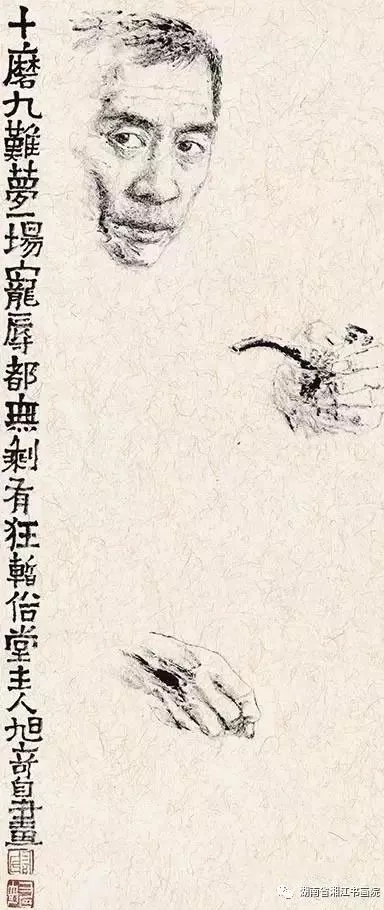 十磨九難夢一場寵辱都無剩有狂暫俗堂主人旭奇自畫
湖南省湘江书画院